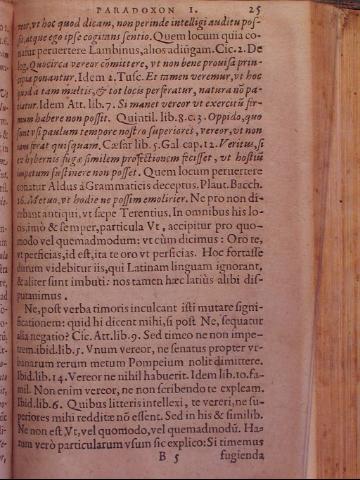 PARADOXON I. 25
reor, vt hoc quod dicam, non perinde intelligi auditu pos-
sit atque ego ipse cogitans sentio. Quem locum quia co-
natur peruertere Lambinus, alios adiũgam. Cic. 2. De
leg. Quocirca vereor cõmittere, vt non bene prouisa prin-
cipia ponantur. Idem 2. Tusc. Et tamen veremur, vt hoc
quod a tam multis, & tot locis perferatur, natura nõ pa-
tiatur. Idem Att. lib. 7. Si manet vereor vt exercitũ fir-
mum habere non possit. Quintil. lib. 8. c. 3. Oppido, quo
sunt vsi paulum tempore nostro superiores, vereor, vt non
iam ferat quisquam. Cæsar lib. 5. Gal cap. 12. Veritus, si
ex hybernis fugæ similem profectionem fecisset, vt hostiũ
impetum sustinere non posset. Quem locum peruertere
conatur Aldus à Grammaticis deceptus. Plaut. Bacch.
16. Metuo, vt hodie ne possim emolirier. Ne pro non di-
cebant antiqui, vt sæpe Terentius. In omnibus his lo-
cis, imò & semper, particula Vt, accipitur pro quo-
modo vel quemadmodum: vt cùm dicimus: Oro te,
vt perficias, id est, ita te oro vt perficias. Hoc fortasse
durum videbitur iis, qui Latinam linguam ignorant,
& aliter sunt imbuti: nos tamen hæc latiùs alibi dis-
putauimus.
Ne, post verba timoris inculcant isti mutare signi-
ficationem: quid hi dicent mihi, si post Ne, sequatur
alia negatio? Cic. Att. lib. 9. Sed timeo ne non impe-
trem. ibid. lib. 5. Vnum vereor, ne senatus propter vr-
banarum rerum metum Pompeium nolit dimittere.
Ibid. lib. 14. Vereor ne nihil habuerit. Idem lib. 10. fa-
mil. Non enim vereor, ne non scribendo te expleam.
Ibid. lib. 6. Quibus litteris intellexi, te vereri, ne su-
periores mihi redditæ nõ essent. Sed in his & similib.
Ne non est, Vt, vel quomodo, vel quemadmodũ. Ha-
rum verò particularum vsum sic explico: Si timemus
B 5 fugienda